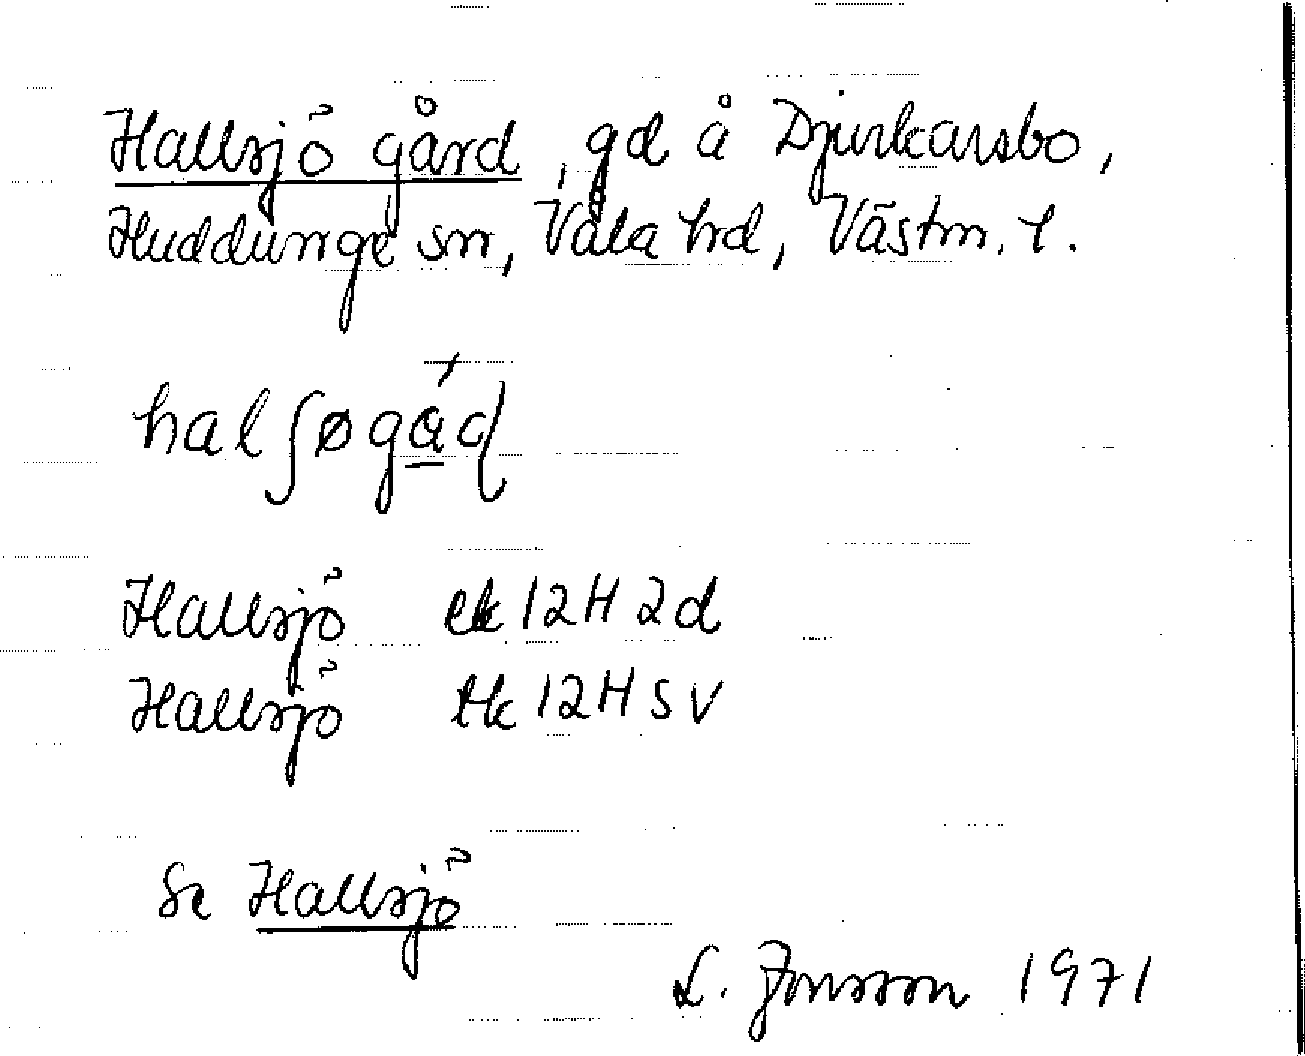 Hallsjö gård, gd å Djurkarsbo,
Huddunge sn, Våla hd, Västm. l.
halʃøgåɖ
Hallsjö ek 12H 2d
Hallsjö tk 12H SV
Se Hallsjö
L. Jonsson 1971